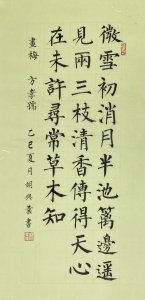 微雪初消月半池籬邊遥
見兩三枝清香傳得天心
在未許尋常草木知
畫梅 方孝孺
乙巳夏月胡興業書